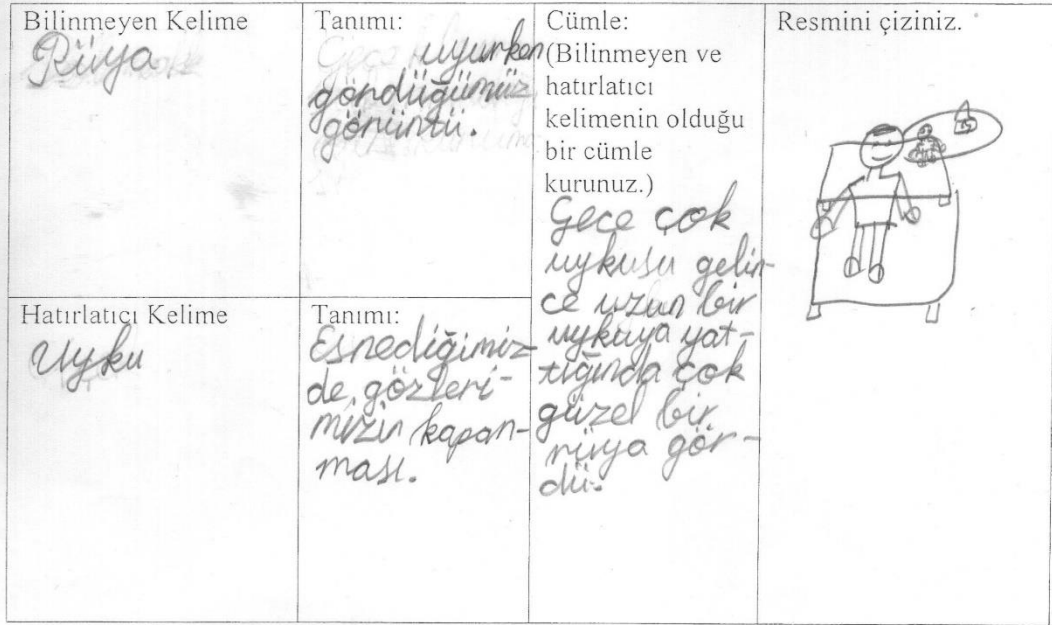 Bilinmeyen Kelime
Rüya
Tanımı:
Gece uyurken
gördüğümüz
görüntü.
Cümle:
(Bilinmeyen ve
hatırlatıcı
kelimenin olduğu
bir cümle
kurunuz.)
Gece çok
uykusu gelin-
ce uzun bir
uykuya yat-
tığında çok
güzel bir
rüya gör-
dü.
Resmini çiziniz.
Hatırlatıcı Kelime
Uyku
Tanımı:
Esnediğimiz-
de gözleri-
mizin kapan-
ması.